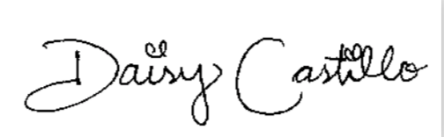 Daisy Castillo